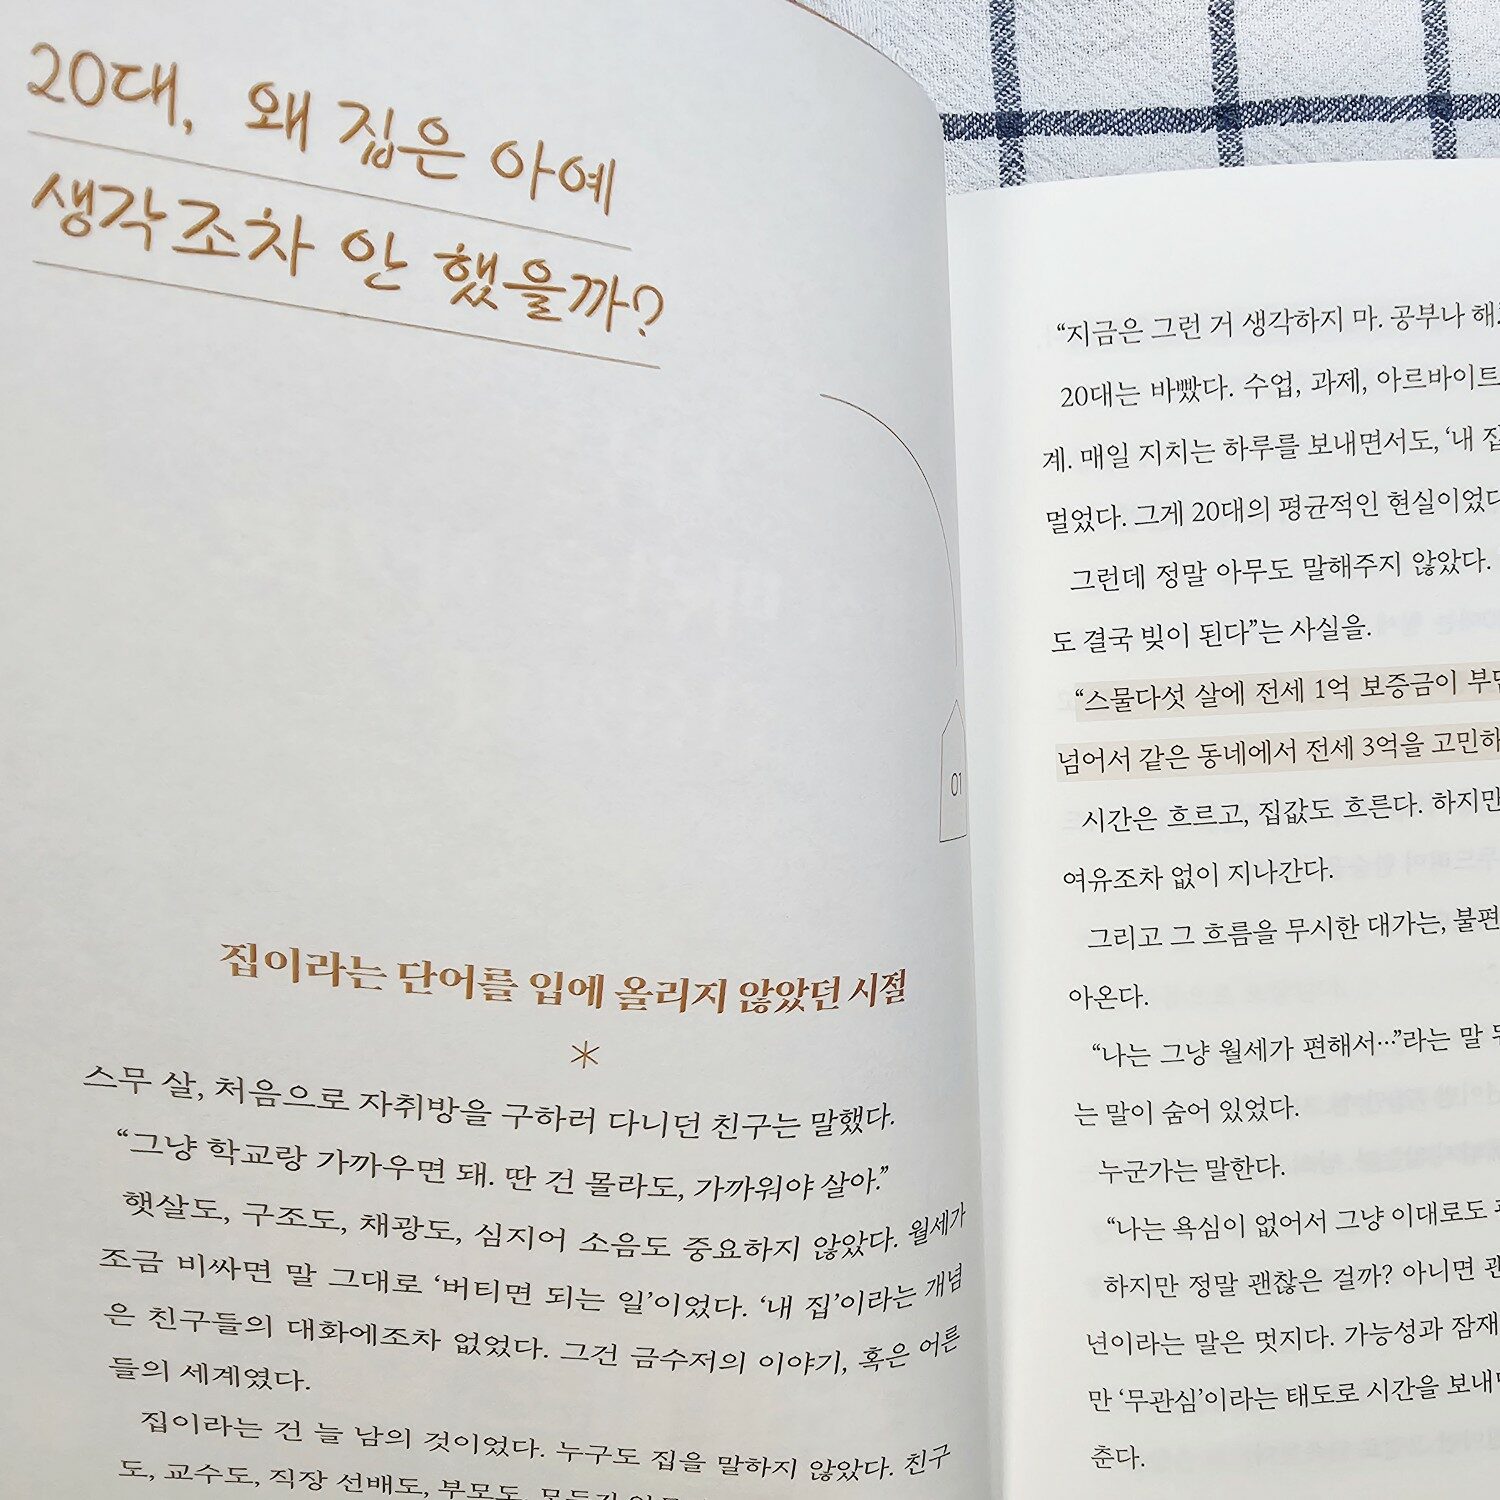 20대, 왜 집은 아예
생각조차 안 했을까?
01
집이라는 단어를 입에 올리지 않았던 시절
스무 살, 처음으로 자취방을 구하러 다니던 친구는 말했다.
“그냥 학교랑 가까우면 돼. 딴 건 몰라도, 가까워야 살아.”
햇살도, 구조도, 채광도, 심지어 소음도 중요하지 않았다. 월세가
조금 비싸면 말 그대로 ‘버티면 되는 일’이었다. ‘내 집’이라는 개념
은 친구들의 대화에조차 없었다. 그건 금수저의 이야기, 혹은 어른
들의 세계였다.
집이라는 건 늘 남의 것이었다. 누구도 집을 말하지 않았다. 친구
도, 교수도, 직장 선배도, 부모도,
“지금은 그런 거 생각하지 마. 공부나
20대는 바빴다. 수업, 과제, 아르바이트
계. 매일 지치는 하루를 보내면서도, ‘내 집
멀었다. 그게 20대의 평균적인 현실이었다
그런데 정말 아무도 말해주지 않았다.
도 결국 빚이 된다”는 사실을.
“스물다섯 살에 전세 1억 보증금이
넘어서 같은 동네에서 전세 3억을 고민하
시간은 흐르고, 집값도 흐른다. 하지만
여유조차 없이 지나간다.
그리고 그 흐름을 무시한 대가는, 불편
아온다.
“나는 그냥 월세가 편해서…”라는 말
는 말이 숨어 있었다.
누군가는 말한다.
“나는 욕심이 없어서 그냥 이대로도
하지만 정말 괜찮은 걸까? 아니면
년이라는 말은 멋지다. 가능성과 잠재
만 ‘무관심’이라는 태도로 시간을 보내
춘다.